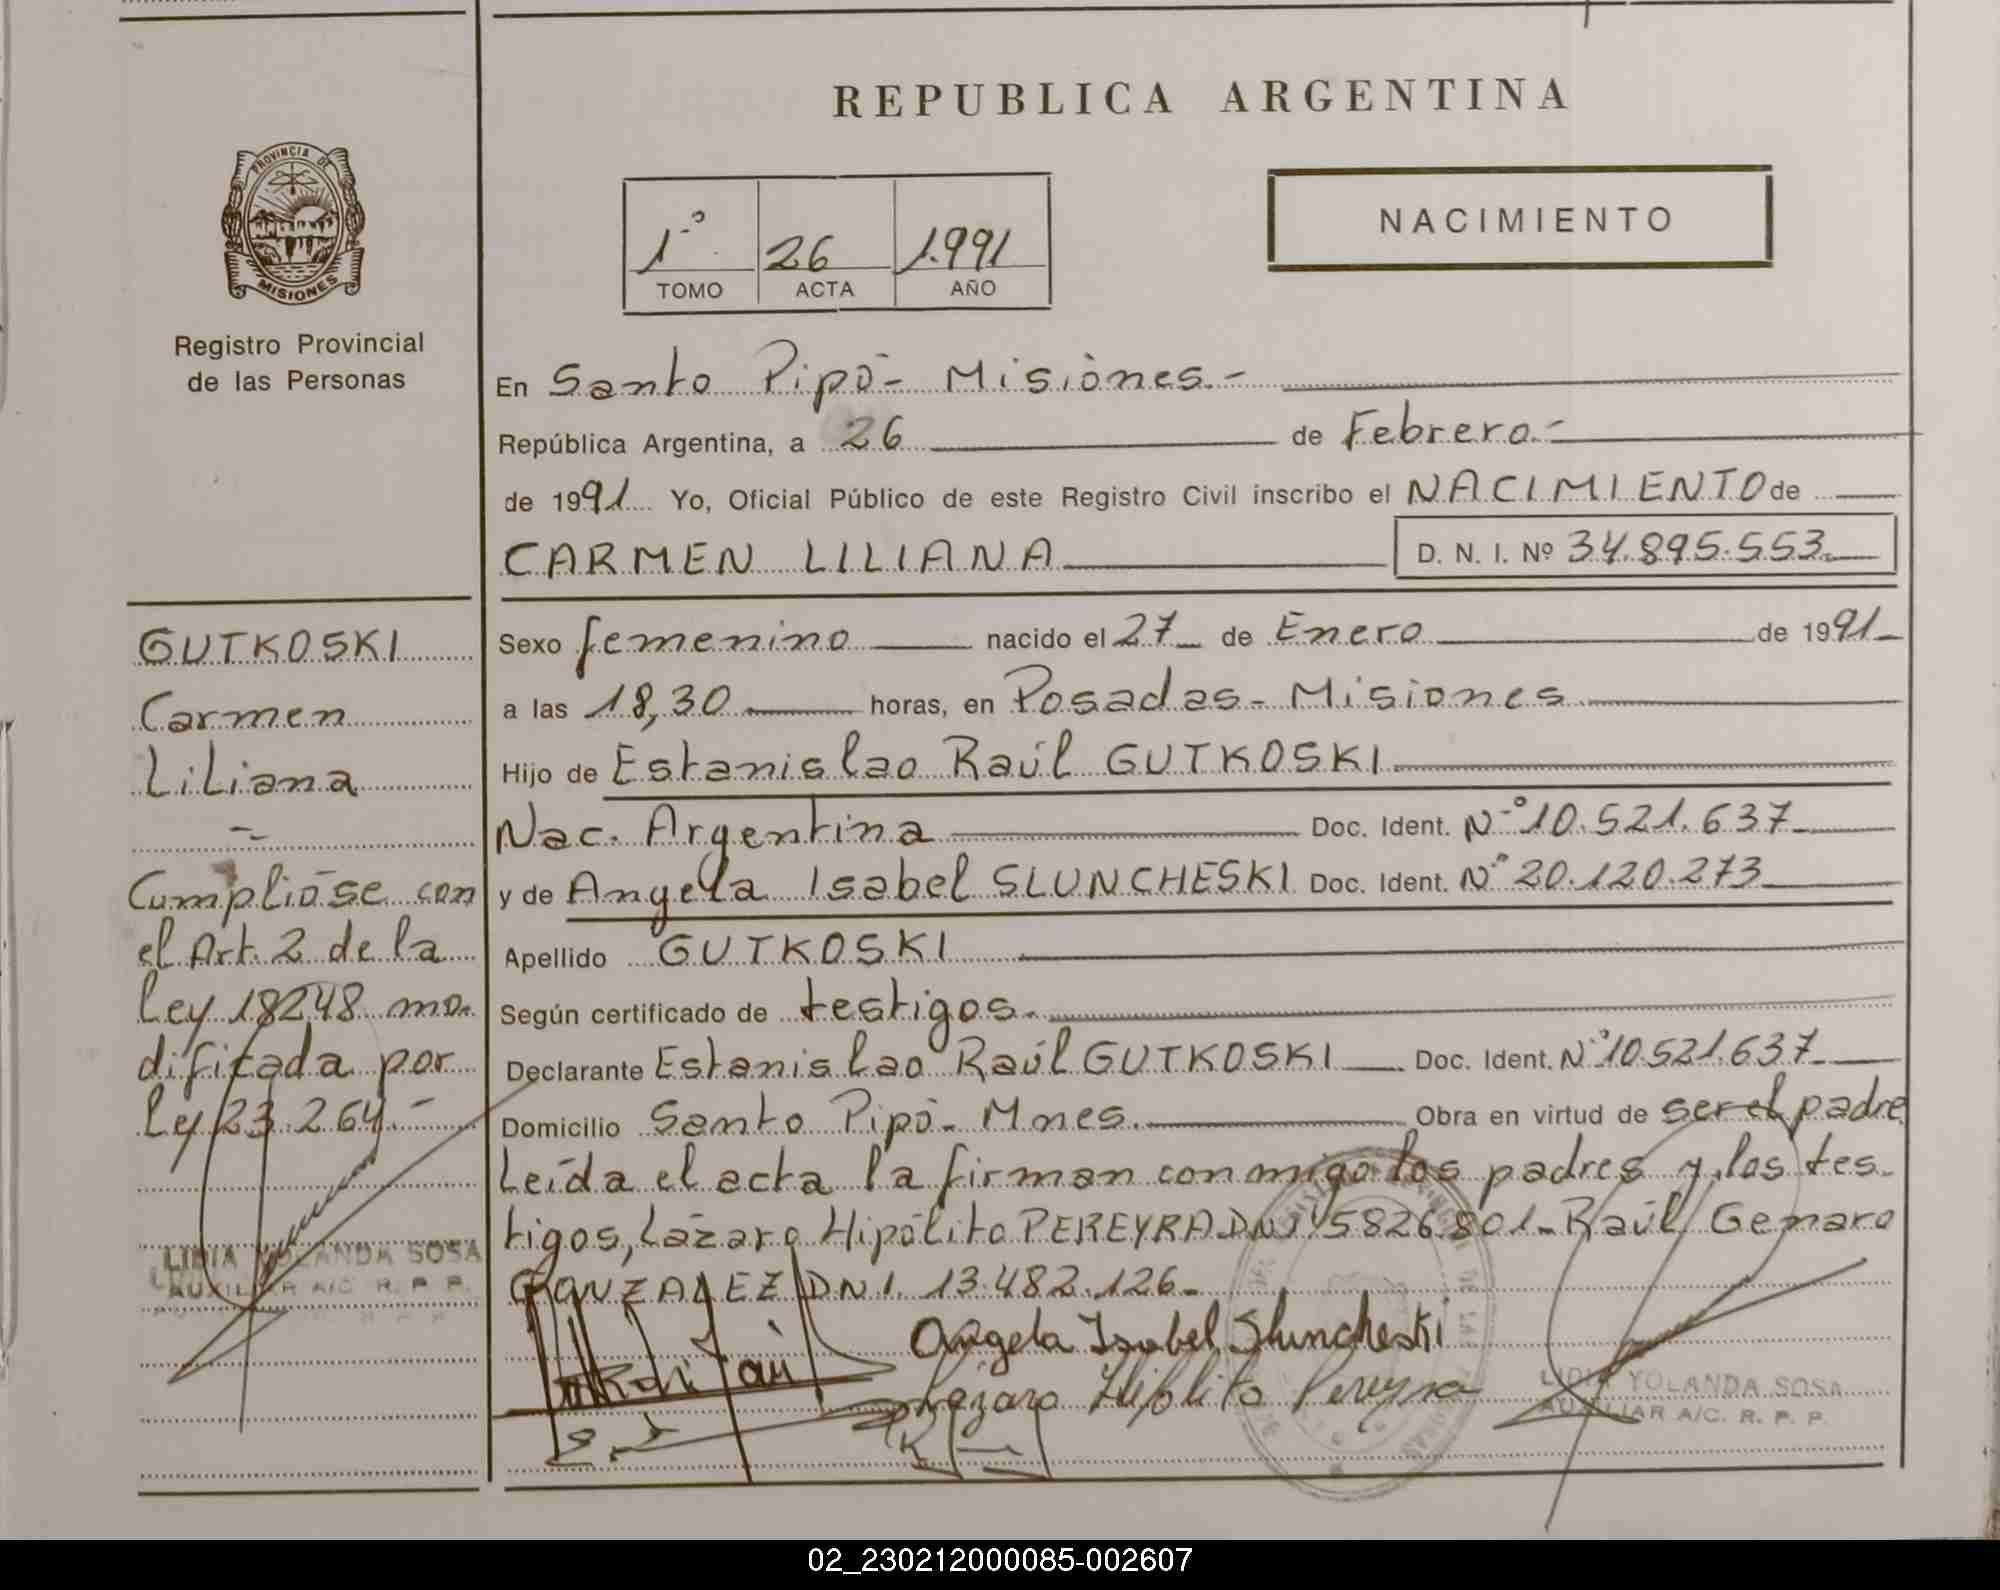 REPUBLICA ARGENTINA
PROVINCIA DE
MISIONES
Registro Provincial
de las Personas
1º 26 1.991
TOMO ACTA AÑO
NACIMIENTO
En Santo Pipó - Misiones.-
República Argentina, a 26 de Febrero.-
de 1991 Yo, Oficial Público de este Registro Civil inscribo el NACIMIENTO de
CARMEN LILIANA D. N. I. Nº 34.895.553.
GUTKOSKI
Carmen
Liliana
Cumplióse con
el Art. 2 de la
Ley 18248 mo.
dificada por
Ley 23.264.-
LIDIA YOLANDA SOSA
AUXILIAR A/C R. P. P.
Sexo femenino nacido el 27 de Enero de 1991
a las 18,30 horas, en Posadas - Misiones
Hijo de Estanislao Raúl GUTKOSKI
Nac. Argentina Doc. Ident. Nº 10.521.637
y de Angela Isabel SLUNCHESKI Doc. Ident. Nº 20.120.273
Apellido GUTKOSKI
Según certificado de testigos.
Declarante Estanislao Raúl GUTKOSKI Doc. Ident. Nº 10.521.637
Domicilio Santo Pipó - Mnes. Obra en virtud de ser el padre
Leída el acta la firman conmigo los padres y los tes-
tigos, Lázaro Hipólito PEREYRA DNI 5826.801 - Raúl Genaro
GONZALEZ DNI. 13.482.126.
Angela Isabel Sluncheski
Lázaro Hipólito Pereyra
LIDIA YOLANDA SOSA
AUXILIAR A/C. R. P. P.
02_230212000085-002607